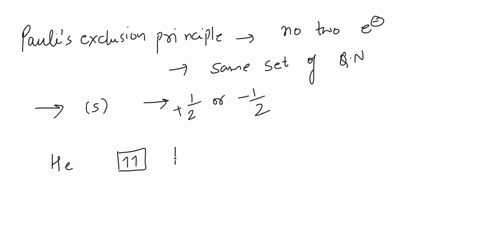 Pauli's exclusion principle → no two e⊖
→ same set of Q.N
→ (s) → +1/2 or -1/2
He 11